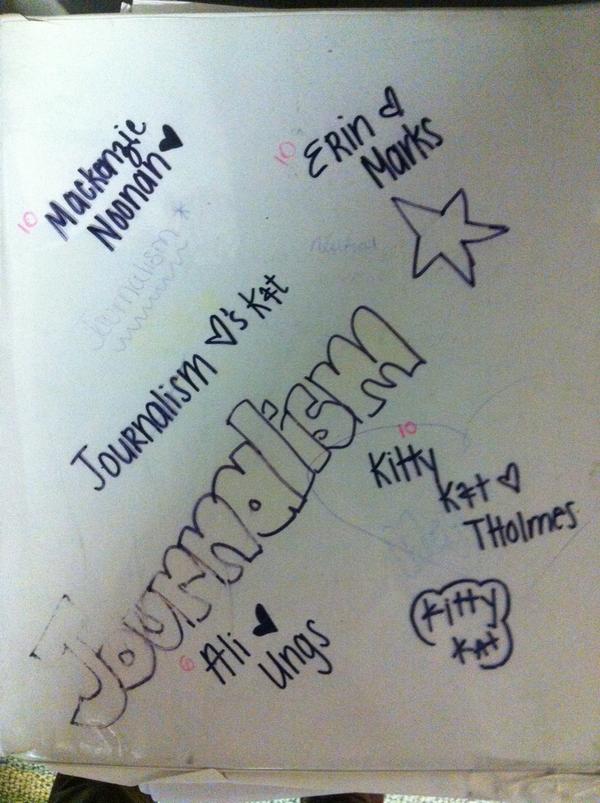 10
Mackenzie
Noonan
10
Erin
Marks
Journalism
Neutral
Journalism ♡'s Kat
Journalism
10
Kitty
Kat ♡
THolmes
6
Ali
Ungs
Kitty
Kat